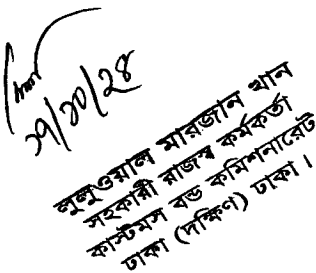 ২৭/১০/২৪
লুলুওয়াল মারজান খান
সহকারী রাজস্ব কর্মকর্তা
কাস্টমস বন্ড কমিশনারেট
ঢাকা (দক্ষিণ) ঢাকা।